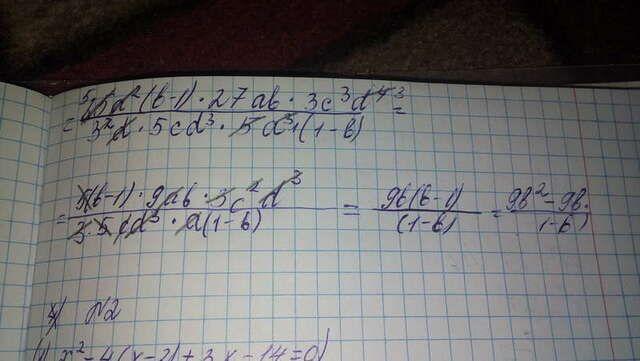 = 15d²(b-1)·27ab·3c³d⁴ / 3²d·5cd³·5d³(1-b) =
= 5(b-1)·9ab·3c²d³ / 3·5cd³·a(1-b) = 9b(b-1) / (1-b) = 9b²-9b / 1-b
N2
x²-4(x-2)+3x-14=0